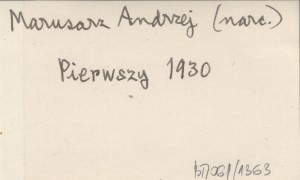 Marusarz Andrzej (narc.)
Pierwszy 1930
/1363